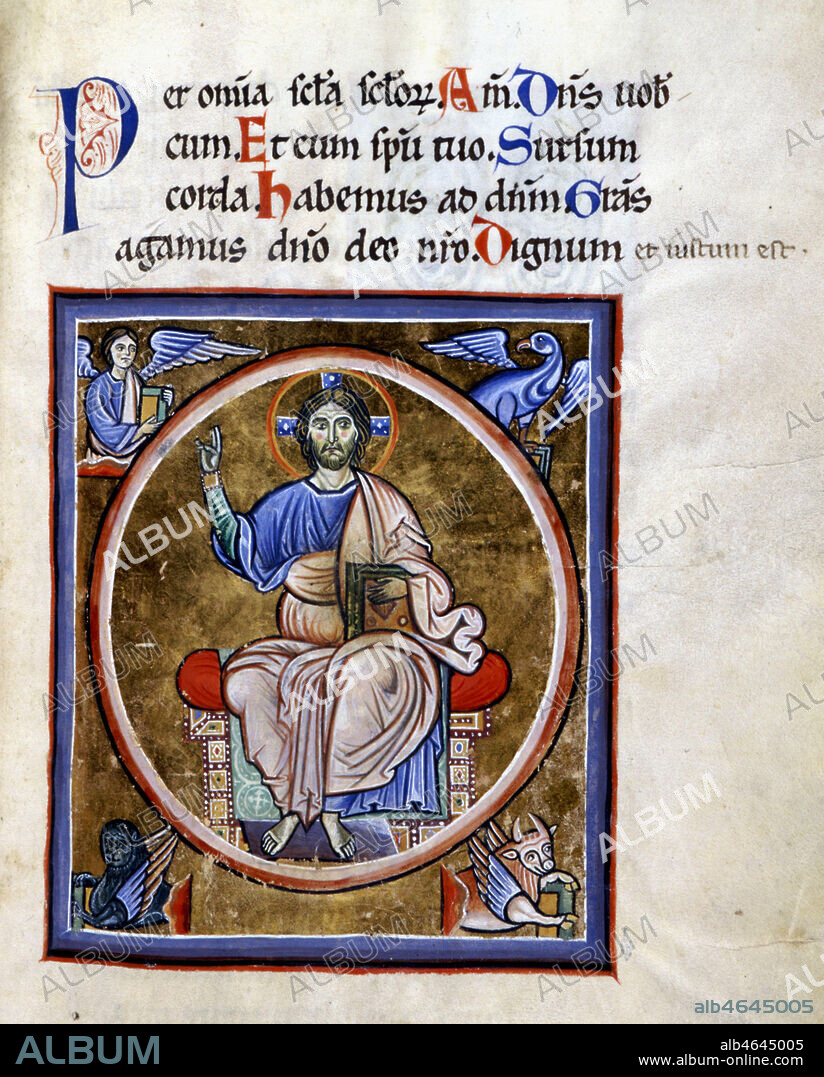 Per om̄ia sc̄la sc̄lorꝝ. Am̄. Dn̄s uob
cum. Et cum sp̄u tuo. Sursum
corda. habemus ad dn̄m. Gr̄as
agamus dn̄o deo nr̄o. Dignum et iustum est.
ALBUM
alb4645005
ALBUM
alb4645005
www.album-online.com